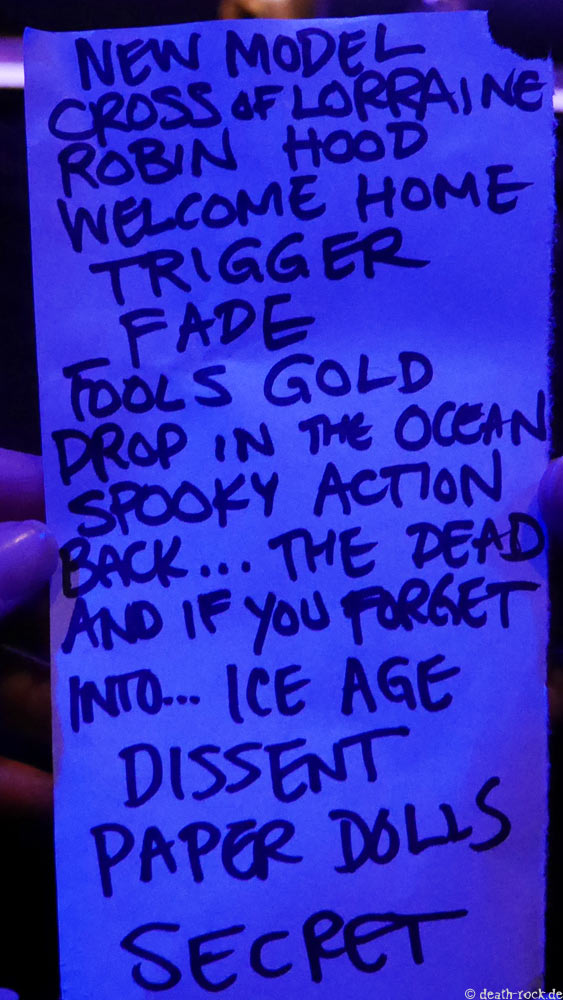 NEW MODEL
CROSS OF LORRAINE
ROBIN HOOD
WELCOME HOME
TRIGGER
FADE
FOOLS GOLD
DROP IN THE OCEAN
SPOOKY ACTION
BACK... THE DEAD
AND IF YOU FORGET
INTO... ICE AGE
DISSENT
PAPER DOLLS
SECRET
© death-rock.de